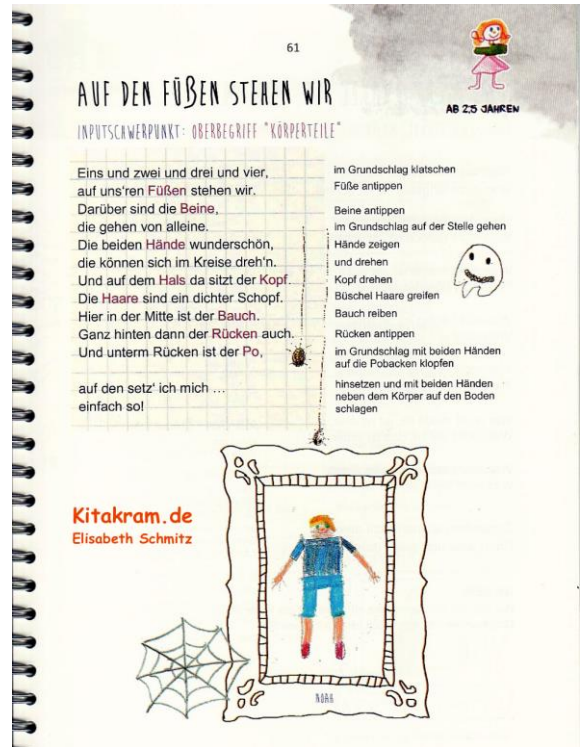 61
AUF DEN FÜßEN STEHEN WIR
AB 2,5 JAHREN
INPUTSCHWERPUNKT: OBERBEGRIFF "KÖRPERTEILE"
Eins und zwei und drei und vier,
auf uns'ren Füßen stehen wir.
Darüber sind die Beine,
die gehen von alleine.
Die beiden Hände wunderschön,
die können sich im Kreise dreh'n.
Und auf dem Hals da sitzt der Kopf.
Die Haare sind ein dichter Schopf.
Hier in der Mitte ist der Bauch.
Ganz hinten dann der Rücken auch.
Und unterm Rücken ist der Po,
auf den setz' ich mich ...
einfach so!
im Grundschlag klatschen
Füße antippen
Beine antippen
im Grundschlag auf der Stelle gehen
Hände zeigen
und drehen
Kopf drehen
Büschel Haare greifen
Bauch reiben
Rücken antippen
im Grundschlag mit beiden Händen
auf die Pobacken klopfen
hinsetzen und mit beiden Händen
neben dem Körper auf den Boden
schlagen
Kitakram.de
Elisabeth Schmitz